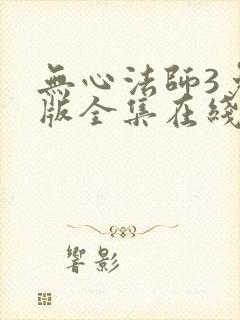 無心法師3
版全集在綫
響影